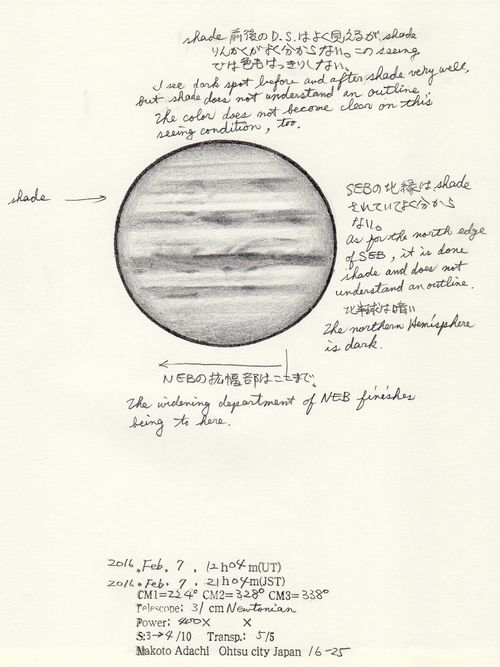 shade 前後のD.S.はよく見えるが、shade
りんかくがよく分からない。このseeing
では色もはっきりしない。
I see dark spot before and after shade very well,
but shade does not understand an outline.
The color does not become clear on this
seeing condition, too.
shade
SEBの北縁は、shade
されていてよく分から
ない。
As for the north edge
of SEB, it is done
shade and does not
understand an outline.
北半球は暗い
The northern Hemisphere
is dark.
NEBの拡幅部はここまで。
The widening department of NEB finishes
being to here.
2016. Feb. 7. 12h04m(UT)
2016. Feb. 7. 21h04m(JST)
CM1=224° CM2=328° CM3=338°
Telescope: 31 cm Newtonian
Power: 400× ×
S:3→4/10 Transp.: 5/5
Makoto Adachi Ohtsu city Japan 16-25